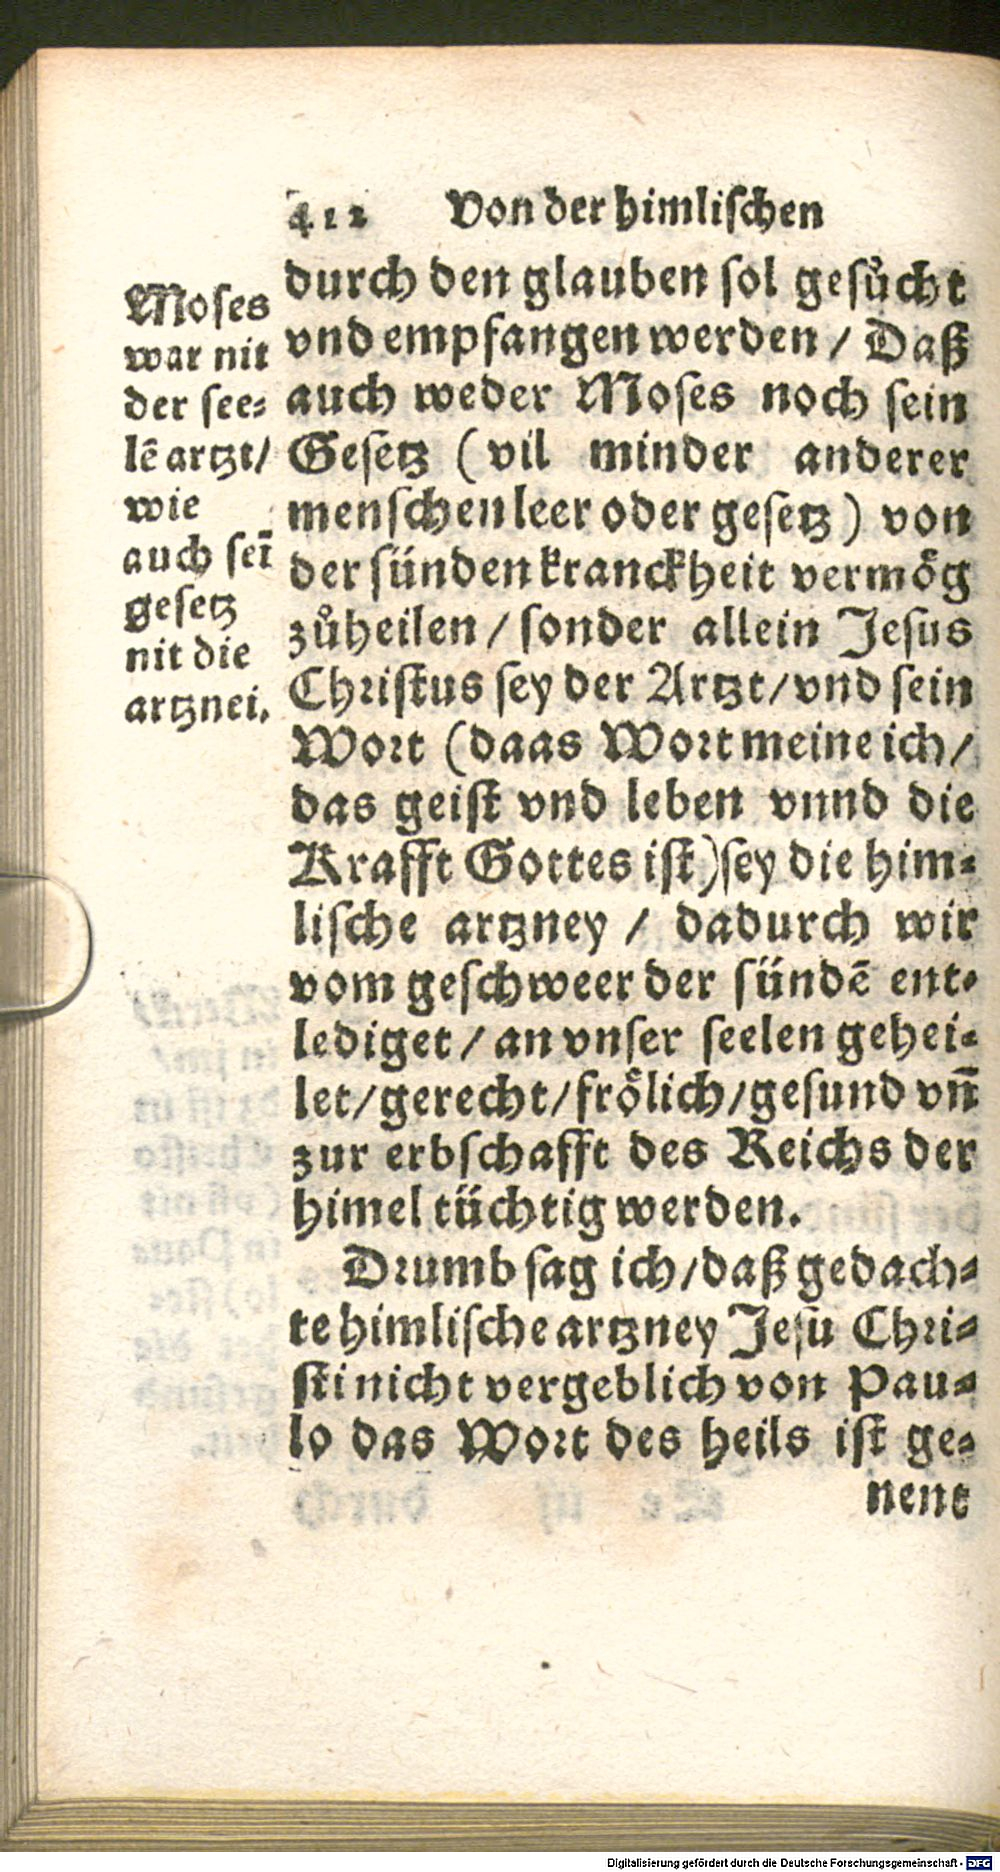 412 Von der himlischen
Moses
war nit
der see-
lē artzt/
wie
auch sei̅
gesetz
nit die
artznei.
durch den glauben sol gesůcht
vnd empfangen werden / Daß
auch weder Moses noch sein
Gesetz (vil minder anderer
menschen leer oder gesetz) von
der sünden kranckheit vermoͤg
zůheilen / sonder allein Jesus
Christus sey der Artzt/vnd sein
Wort (daas Wort meine ich/
das geist vnd leben vnnd die
Krafft Gottes ist) sey die him-
lische artzney / dadurch wir
vom geschweer der sündē ent-
lediget / an vnser seelen gehei-
let/gerecht/froͤlich/gesund vn̅
zur erbschafft des Reichs der
himel tüchtig werden.
Drumb sag ich/daß gedach-
te himlische artzney Jesu Chri-
sti nicht vergeblich von Pau-
lo das Wort des heils ist ge-
nent
Digitalisierung gefördert durch die Deutsche Forschungsgemeinschaft - DFG